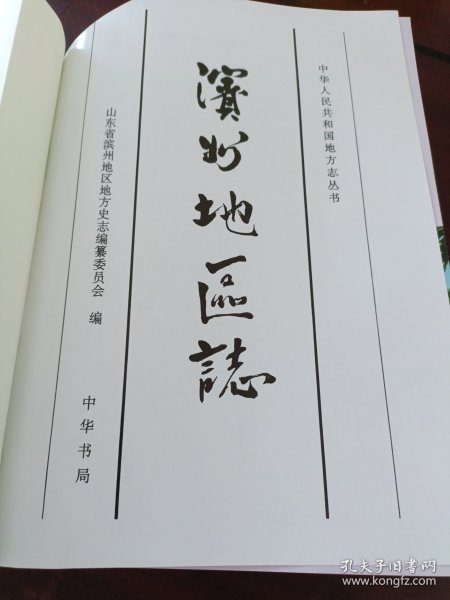 中华人民共和国地方志丛书
濱州地區誌
山东省滨州地区地方史志编纂委员会 编
中华书局
孔夫子旧书网
www.kongfz.com